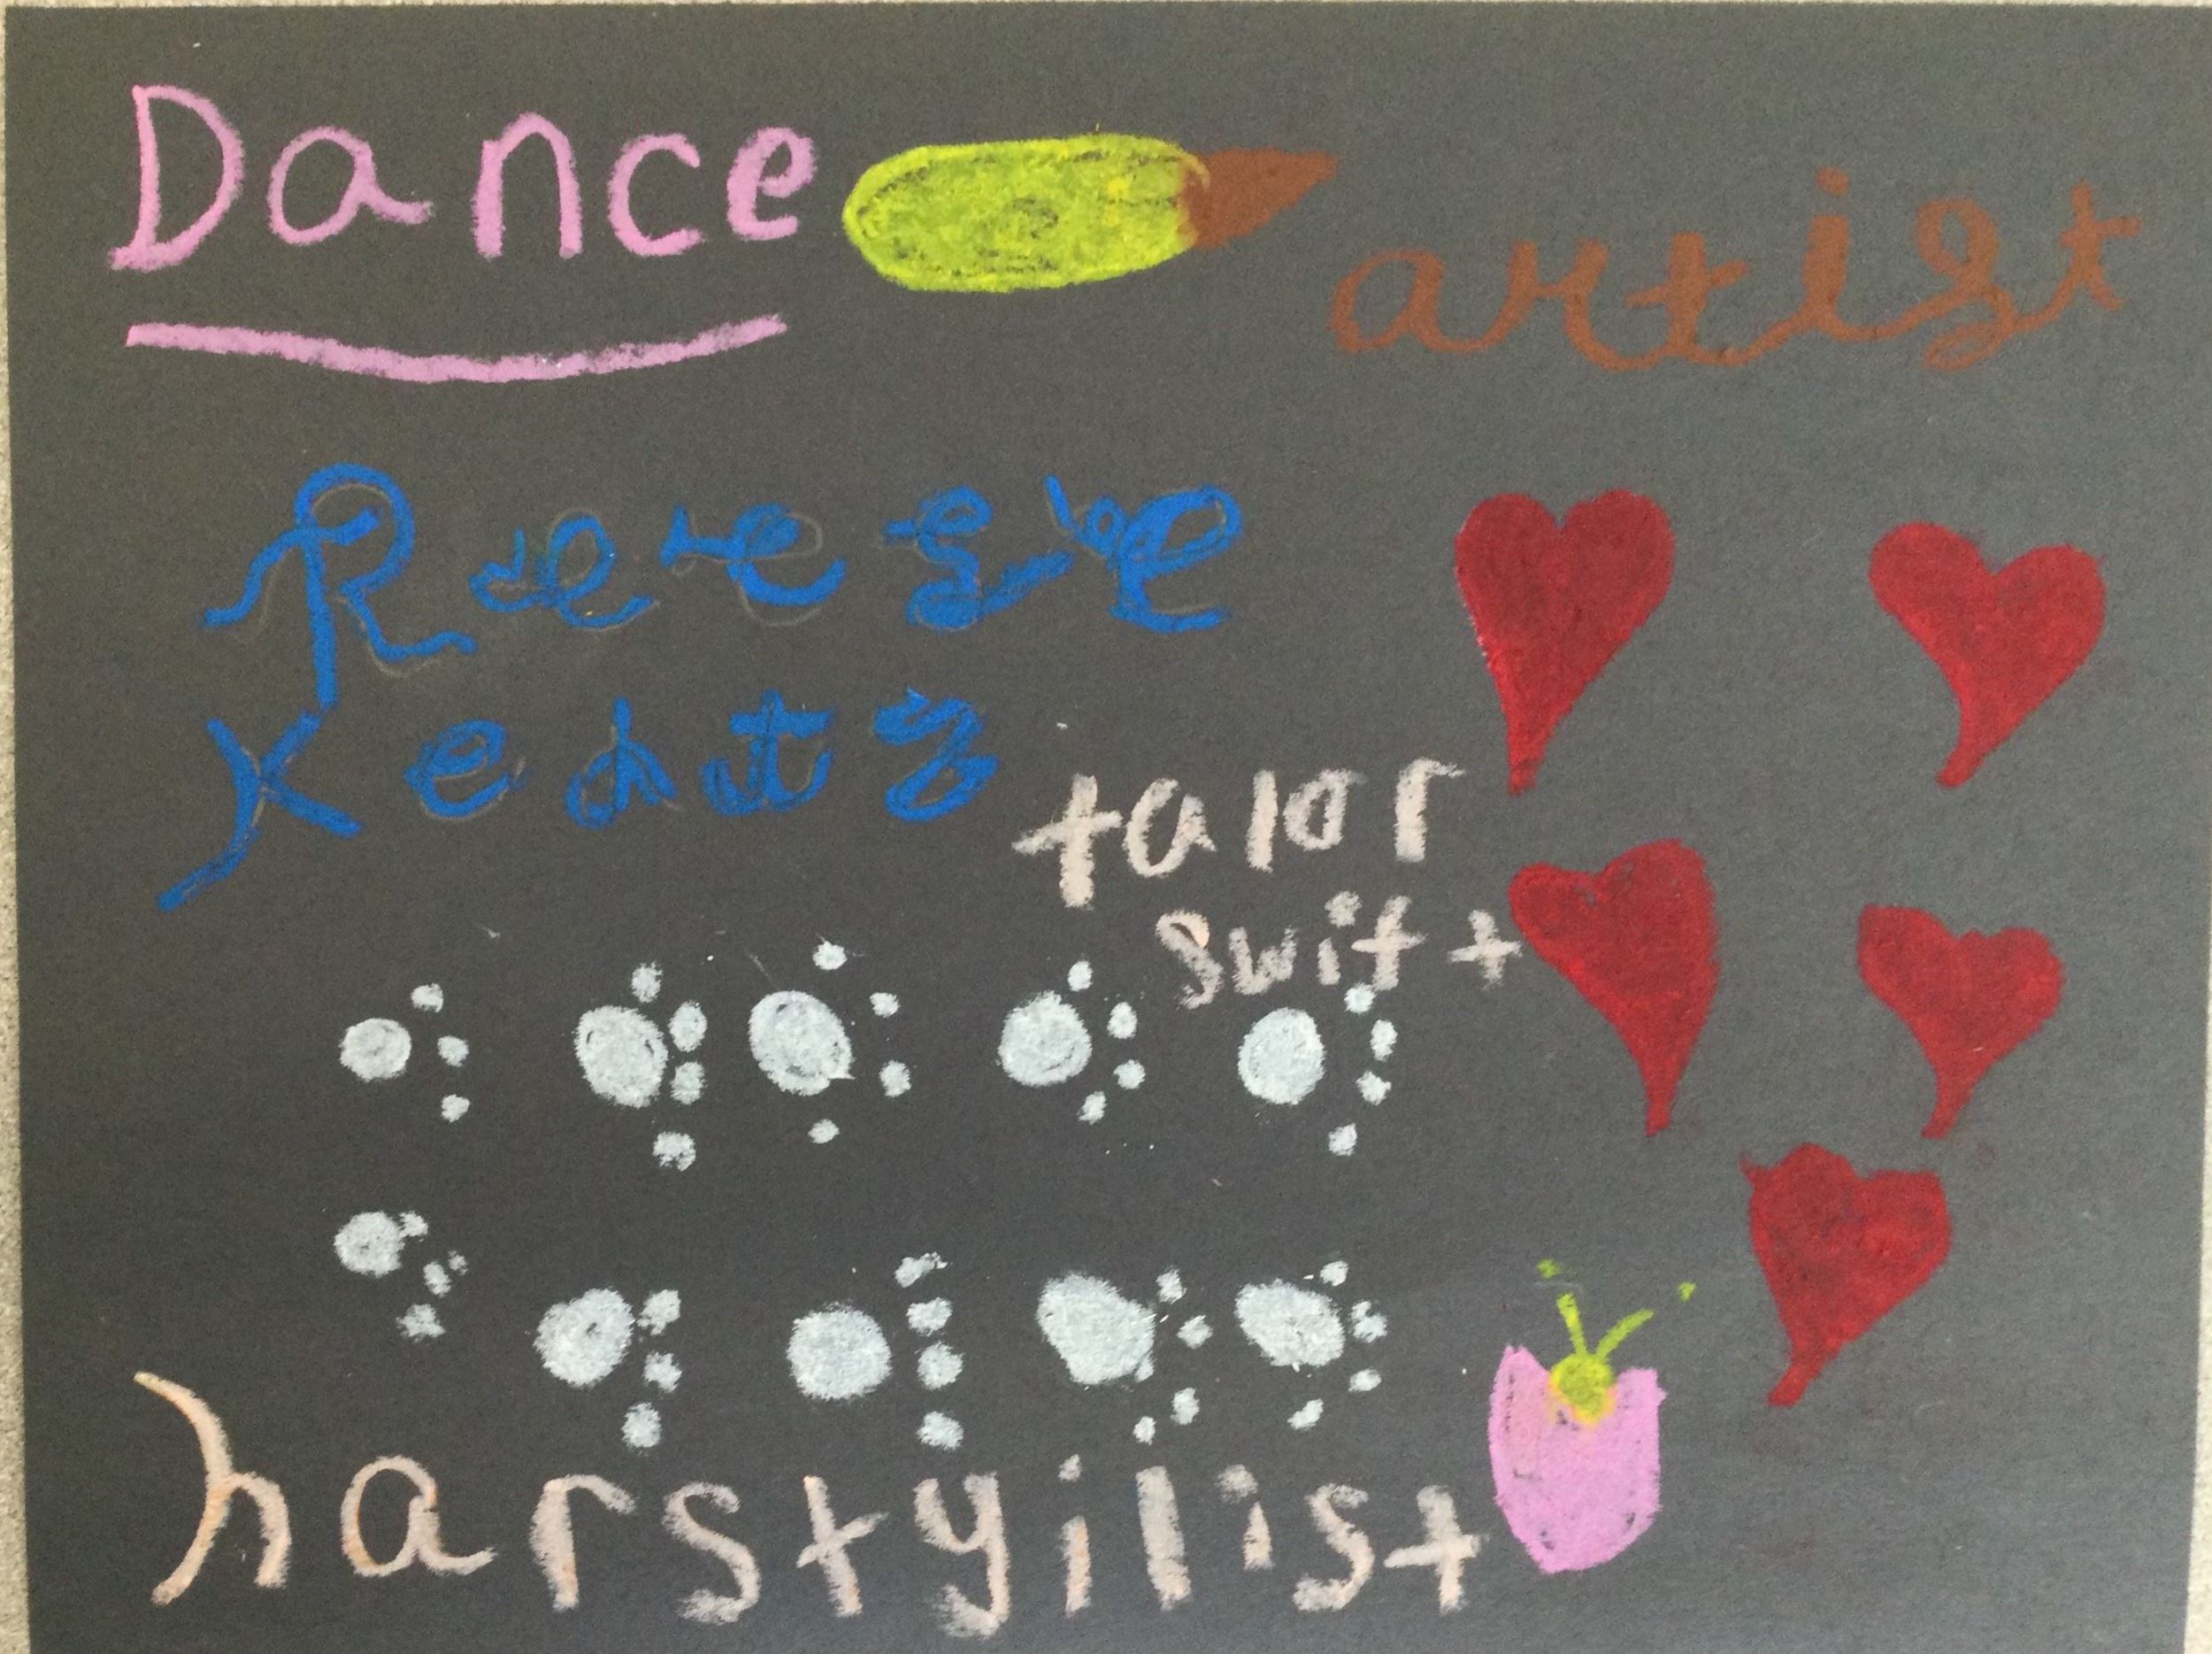 Dance
artist
Reese
talor
swift
harstyilist